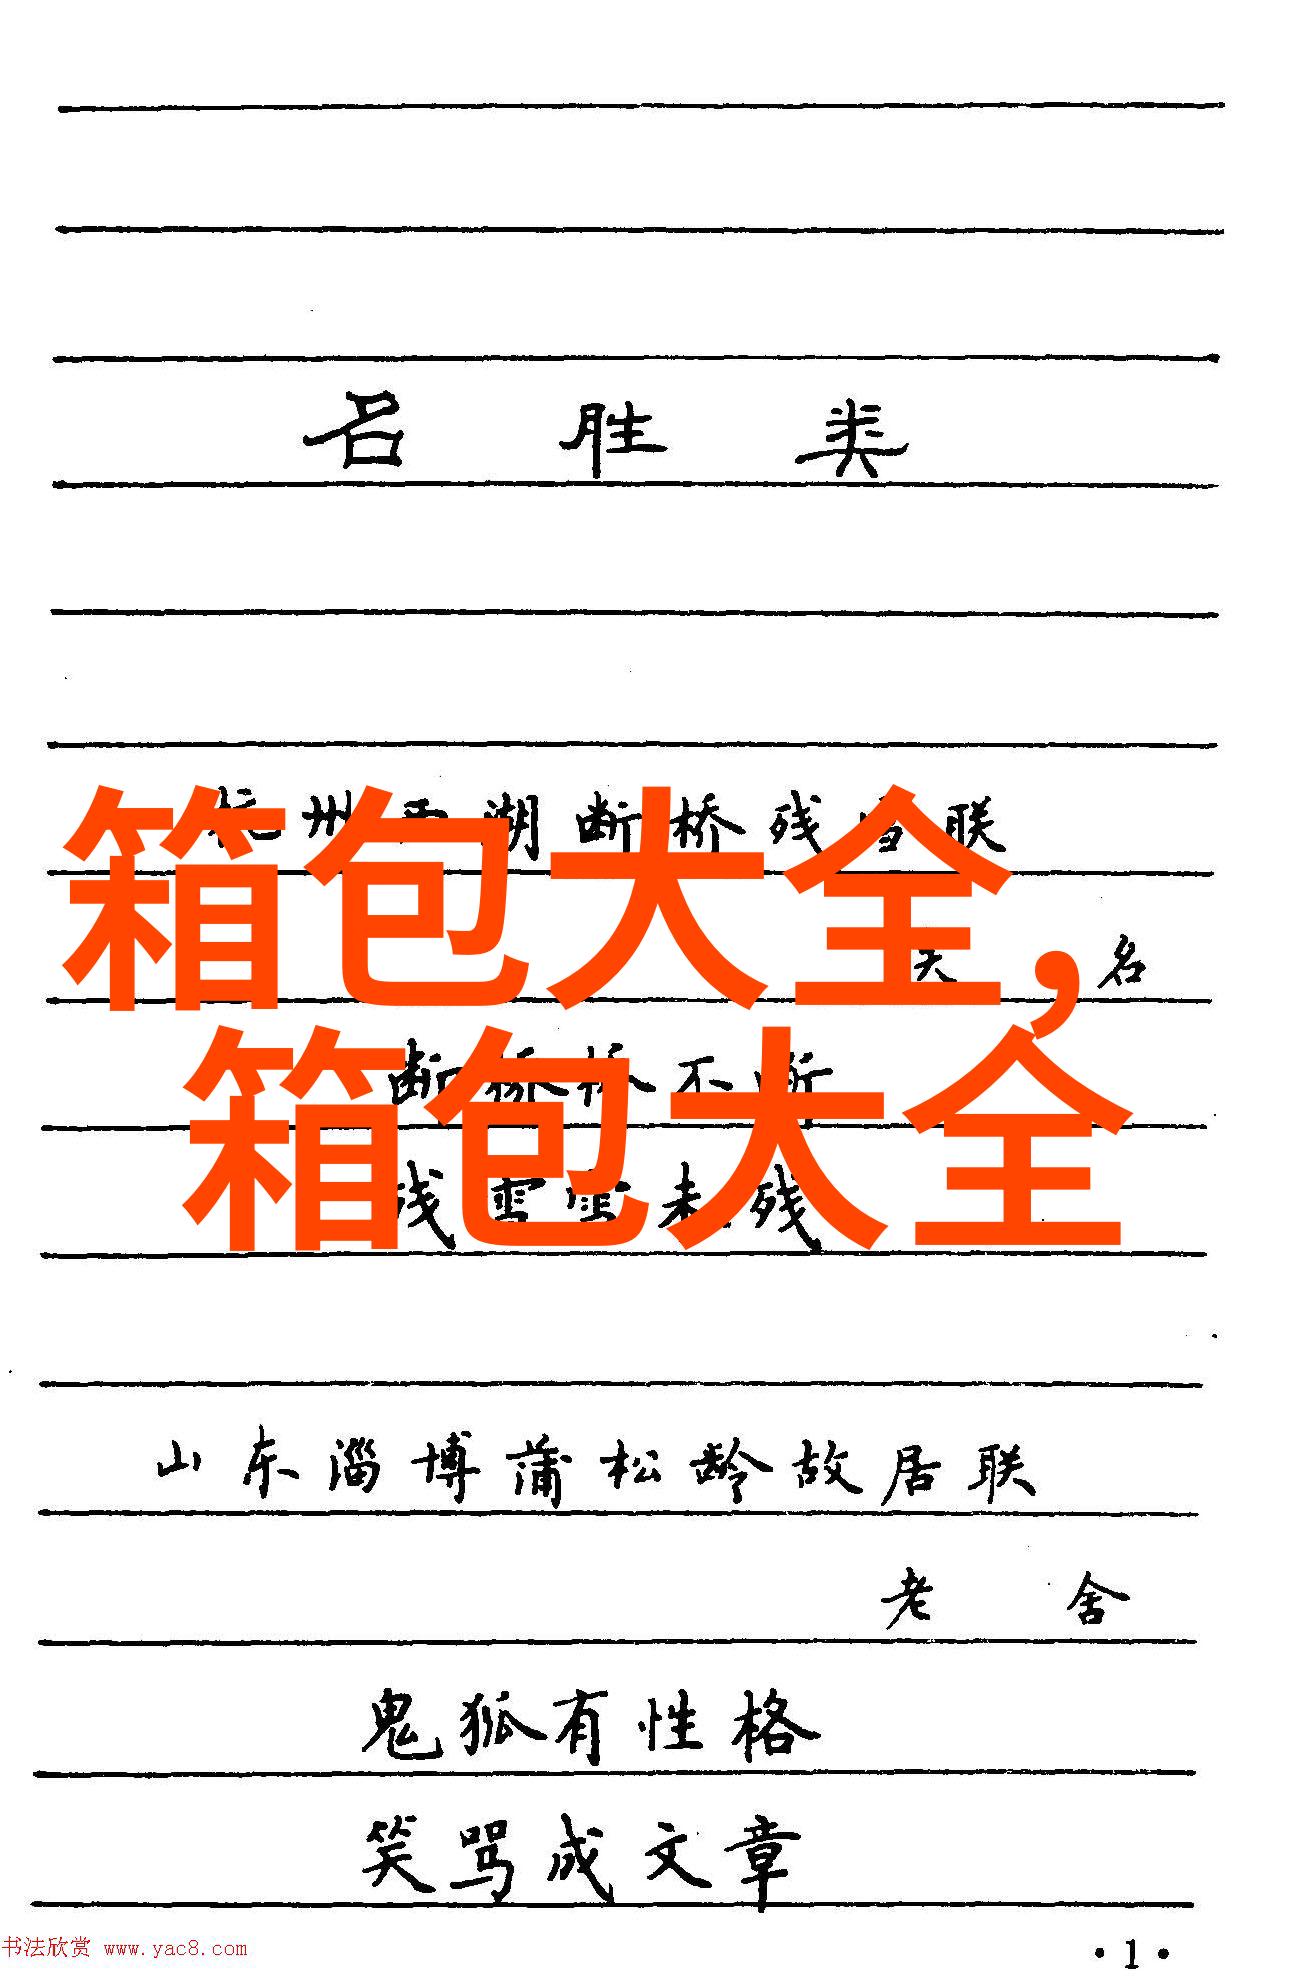 名胜类
杭州西湖断桥残雪联
箱包大全,
名
断桥桥不断
箱包大全
残雪雪未残
山东淄博蒲松龄故居联
老舍
鬼狐有性格
笑骂成文章
书法欣赏 www.yac8.com
·1·